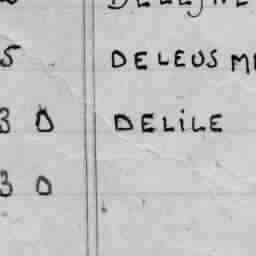 5 DELEUS
3 0 DELiLE
3 0